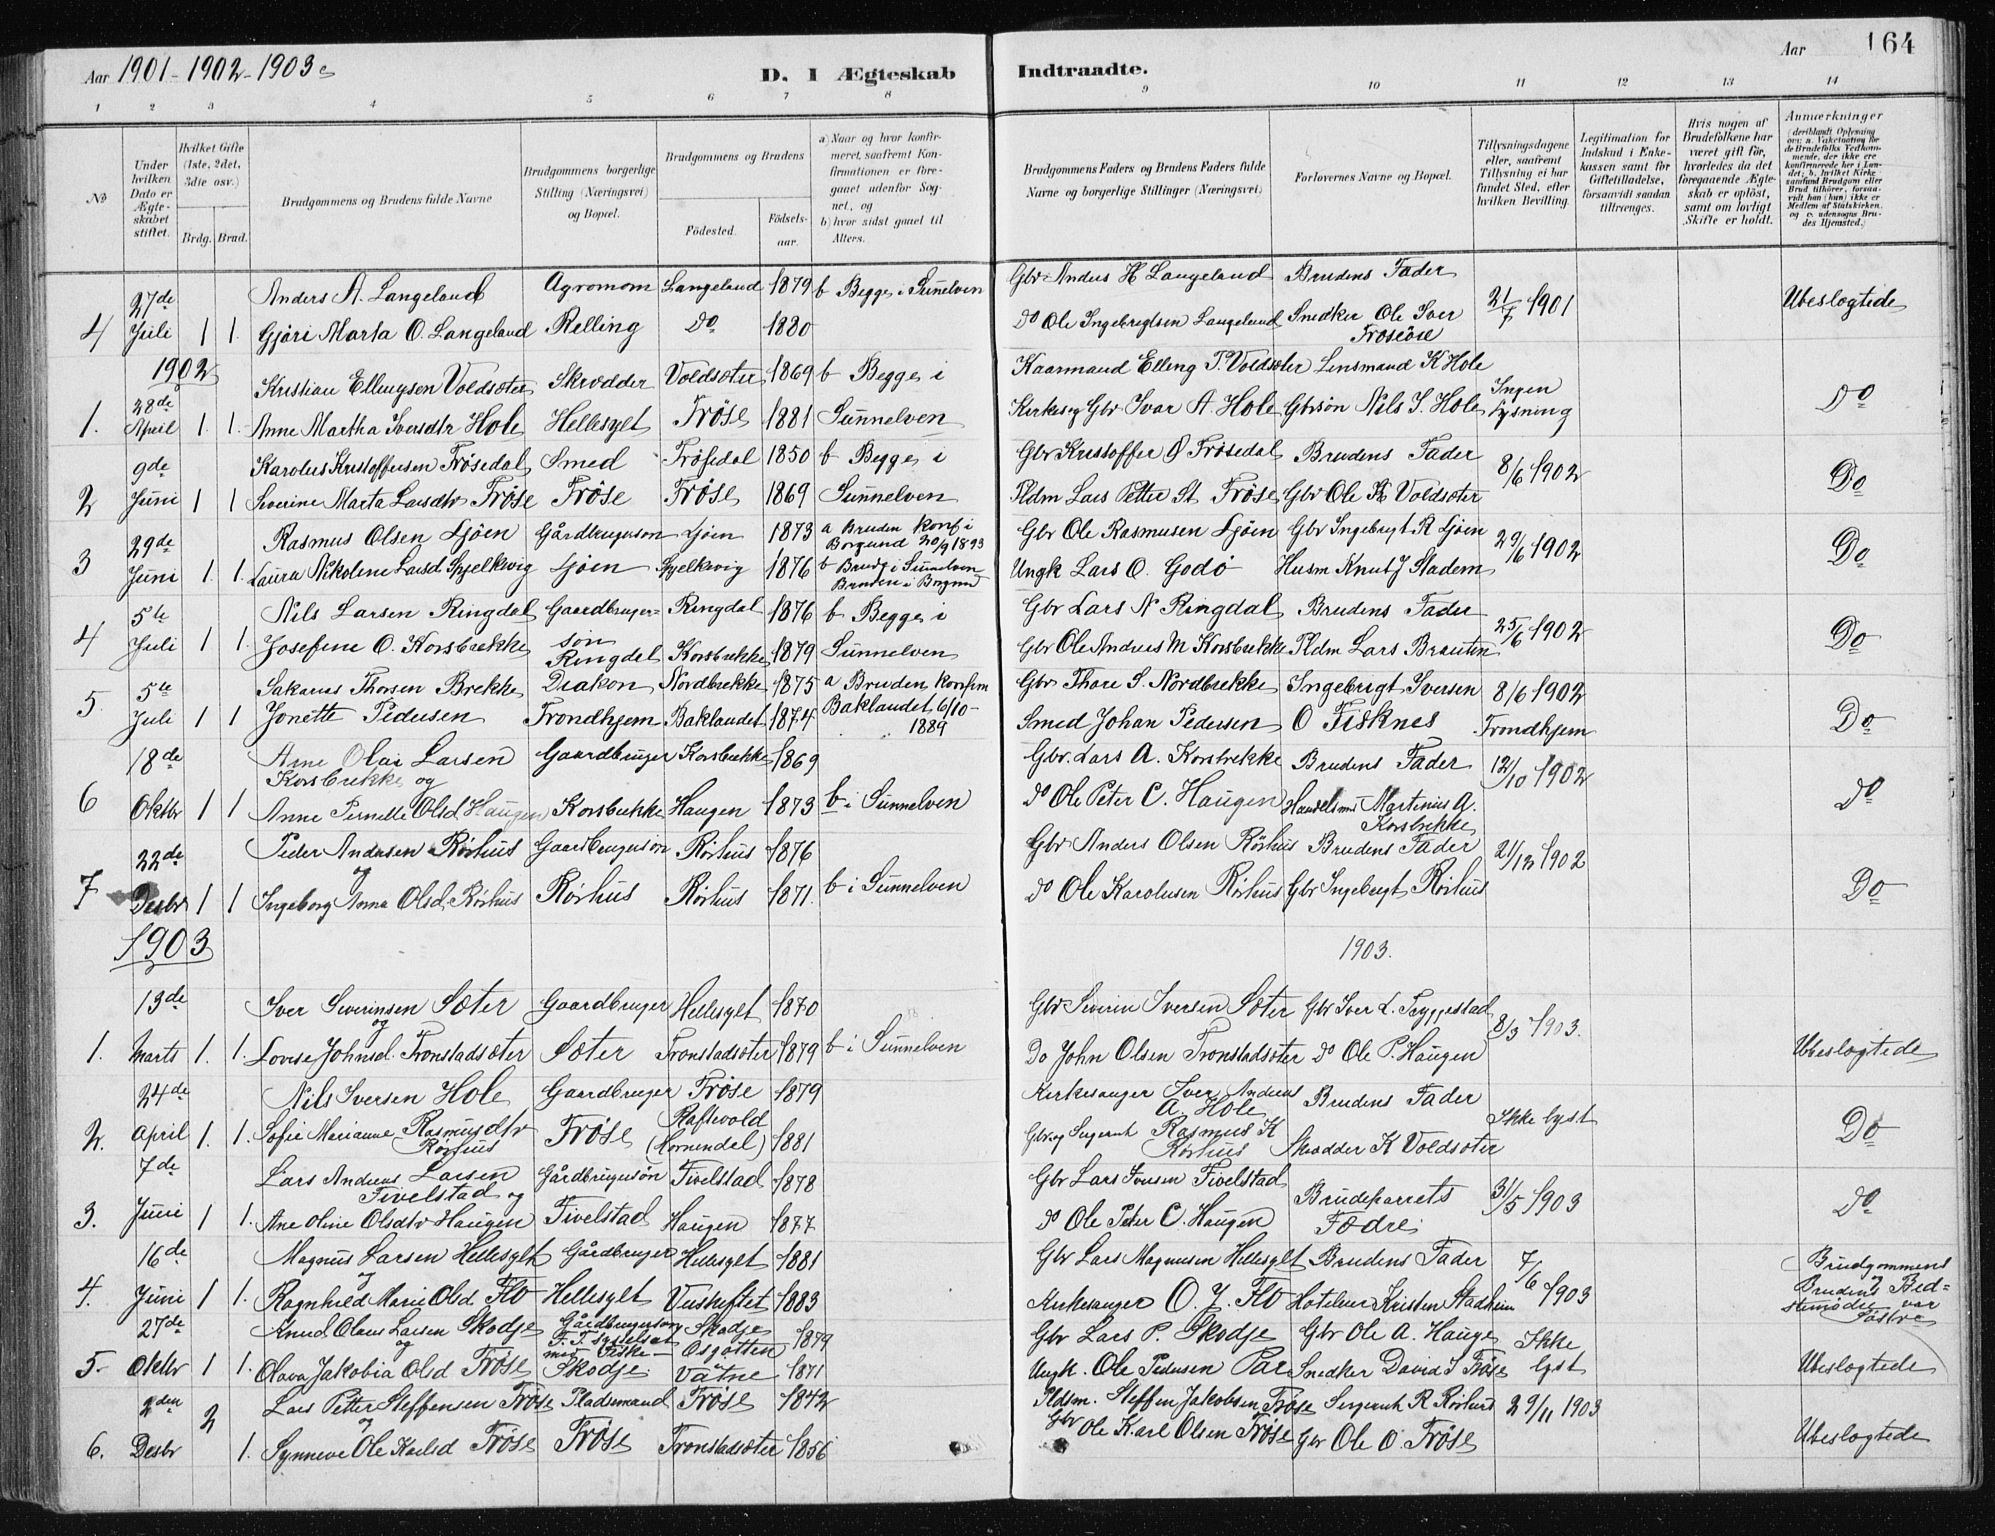 Aar 1901-1902-1903
D. I Ægteskab Indtraadte.
Aar 164
1 2 3 4 5 6 7 8 9 10 11 12 13 14
No
Under hvilken Dato er Ægteskabet stiftet.
Hvilket Gifte (1ste, 2det, 3die osv.)
Brdg. Brud.
Brudgommens og Brudens fulde Navne
Brudgommens borgerlige Stilling (Næringsvei) og Bopæl.
Brudgommens og Brudens
Födested.
Födselsaar.
a) Naar og hvor konfirmeret, saafremt Konfirmationen er foregaaet udenfor Sognet, og
b) hvor sidst gaaet til Alters.
Brudgommens Faders og Brudens Faders fulde Navne og borgerlige Stillinger (Næringsvei)
Forlovernes Navne og Bopæl.
Tillysningsdagene eller, saafremt Tillysning ei har fundet Sted, efter hvilken Bevilling.
Legitimation for Indskud i Enkekassen samt for Giftetilladelse, forsaavidt saadan tiltrænges.
Hvis nogen af Brudefolkene har været gift för, hvorledes da det foregaaende Ægteskab er oplöst, samt om lovligt Skifte er holdt.
Anmærkninger
(deriblandt Oplysning om: a. Vakcination for de Brudefolks Vedkommende, der ikke ere konfirmerede her i Landet; b. hvilket Kirkesamfund Brudgom eller Brud tilhörer, forsaavidt han (hun) ikke er Medlem af Statskirken, og c. udensogns Brudes Hjemsted.)
27de Anders A. Langeland Agronom Langeland 1879 b Begge i Sunnelven Gbr Anders H Langeland Brudens Fader 21/7 1901 Ubeslogtede
4 Juli 1 1. Gjöri Marta O. Langeland Relling Do 1880 Do Ole Ingebrigtsen Langeland Snedker Ole Iver
1902
28de Kristian Ellingsen Voldsæter Skrædder Voldsæter 1869 b Begge i Kaarmand Elling P Voldsæter Lensmand K Hole Ingen Do
1. April 1. 1. Anne Martha Iversdtr Hole Hellesylt Fröse 1881 Sunnelven Kirkesg Gbr Ivar A. Hole Gbrsön Nils I. Hole Lysning
9de Karolus Kristoffersen Frösedal Smed Frösedal 1850 b Begge i Gbr Kristoffer O Frösedal Brudens Fader 8/6 1902 Do
2 Juni 1 1 Severine Marta Larsdtr Fröse Fröse Fröse 1869 Sunnelven Pldm Lars Petter St. Fröse Gbr Ole K Voldsæter
29de Rasmus Olsen Ljöen Gårdbrugerson Ljöen 1873 a Bruden konf i Borgund 20/9 1893 Gbr Ole Rasmusen Ljöen Gbr Ingebrigt R Ljöen 29/6 1902 Do
3 Juni 1. 1. Laura Nikoline Larsd Spjelkevig Ljöen Spjelkevig 1876 b Brudg i Sunnelven Bruden i Borgund Ungk Lars O. Godö Husm Knut J Stadem
5te Nils Larsen Ringdal Gaardbruger- Ringdal 1876 b Begge i Gbr Lars N Ringdal Brudens Fader 25/6 1902 Do
4 Juli 1 1. Josefine O. Korsbrekke sön Ringdal Korsbrekke 1879 Sunnelven Gbr Ole Andreas M Korsbrekke Pldm Lars Brautin
5te Sakarias Thorsen Brekke Diakon Nordbrekke 1875 a Bruden konfirm Gbr Thore S. Nordbrekke Ingebrigt Iversen 8/6 1902
5 Juli 1 1 Jonette Pedersen Trondhjem Baklandet 1874. Baklandet 6/10-1889 Smed Johan Pedersen O Fisknes Trondhjem Do
18de Arne Olai Larsen Korsbrekke og Gaardbruger Korsbrekke 1869 Gbr. Lars A. Korsbrekke Brudens Fader 12/10 1902
6 Oktbr 1 1 Anne Pernelle Olsd Haugen Korsbrekke Haugen 1873 b i Sunnelven do Ole Peter C. Haugen Handelsm Martinius A. Korsbrekke Do
22de Peder Andersen Rörhus og Gaardbrugersön Rörhus 1876 Gbr Anders Olsen Rörhus Brudens Fader 21/12 1902
7 Desbr 1 1 Ingeborg Anna Olsd. Rörhus Rörhus Rörhus 1871. b i Sunnelven do Ole Karolusen Rörhus Gbr Ingebrigt Rörhus Do
1903 1903.
13de Iver Severinsen Sæter og Gaardbruger Hellesylt 1870 Gbr Severin Iversen Sæter Gbr Iver L. Tryggestad 8/3 1903.
1. Marts 1. 1. Lovise Johnsd. Tronstadsæter Sæter Tronstadsæter 1879 b i Sunnelven Do John Olsen Tronstadsæter do Ole P. Haugen Ubeslogtede
24de Nils Iversen Hole Gaardbruger Fröse 1879 Kirkesanger Iver Andreas A. Hole Brudens Fader Ikke lyst
2. April 1. 1. Sofie Marianne Rasmusdtr Rörhus Fröse Raftevold (Hornindal) 1881 Gbr og Sergeant Rasmus K Rörhus Skrædder K Voldsæter Do
7de Lars Andreas Larsen Fivelstad og Gårdbrugersön Fivelstad 1878 Gbr Lars Iversen Fivelstad Brudeparrets 31/5 1903
3. Juni 1 1. Ane Oline Olsdtr Haugen Fivelstad Haugen 1877 do Ole Peter C. Haugen Fædre Do
16de Magnus Larsen Hellesylt og Gårdbruger Hellesylt 1881 Gbr Lars Magnusen Hellesylt Brudens Fader 7/6 1903 Brudgommens og
4. Juni 1 1. Ragnhild Marie Olsd Flo Hellesylt 1883 Kirkesanger O. J. Flo Hoteleier Kristen Stadheim Brudens Bedstemödre var Söstre
27de Knud Olaus Larsen Skodje og Gårdbrugersön F. T. sysselsat med Fiske- Skodje 1879 Gbr Lars P. Skodje Gbr Ole A. Hauge Ikke
5- Oktbr 1 1. Olava Jakobia Olsd Fröse Skodje Vatne 1871 Ungk. Ole Pedersen Snedker David I Fröse lyst Ubeslogtede
2den Lars Petter Steffensen Fröse og Pladsmand Fröse 1842 Pldsm. Steffen Jakobsen Fröse Sergeant R Rörhus 29/11 1903
6. Desbr 2 1. Synneve Ole Karlsd Fröse Fröse Tronstadsæter 1856 Gbr Ole Karl Olsen Fröse Gbr Ole O. Fröse Ubeslogtede